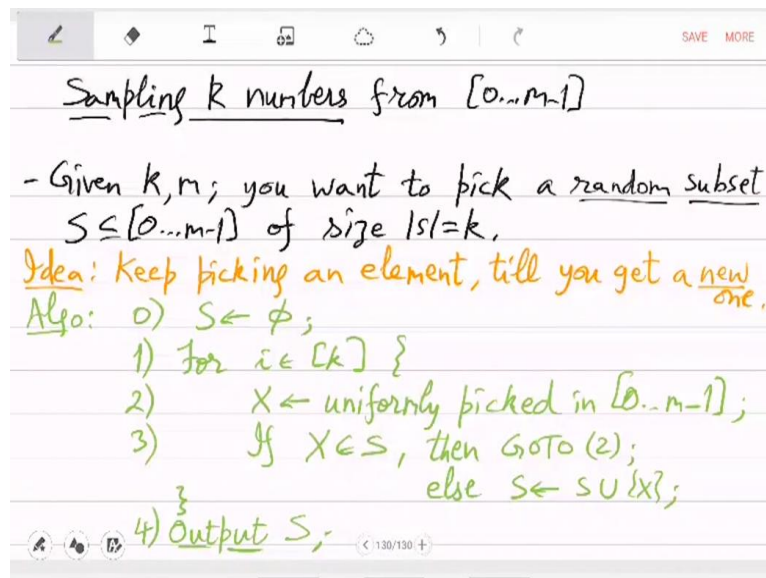 SAVE MORE
Sampling k numbers from [0...m-1]
- Given k, m; you want to pick a random subset
S ⊆ [0...m-1] of size |S|=k.
Idea: Keep picking an element, till you get a new
one.
Algo: 0) S ← ϕ;
1) For i ∈ [k] {
2) X ← uniformly picked in [0...m-1];
3) If X ∈ S, then GOTO (2);
else S ← S ∪ {X};
}
4) Output S;
< 130/130 +